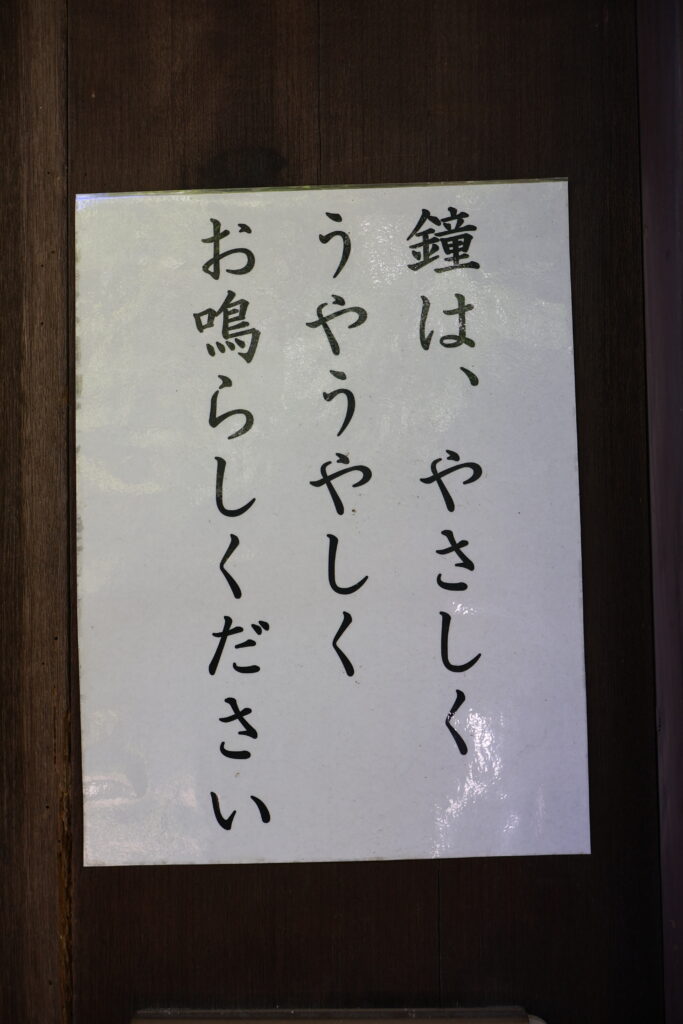 鐘は、やさしく
うやうやしく
お鳴らしください